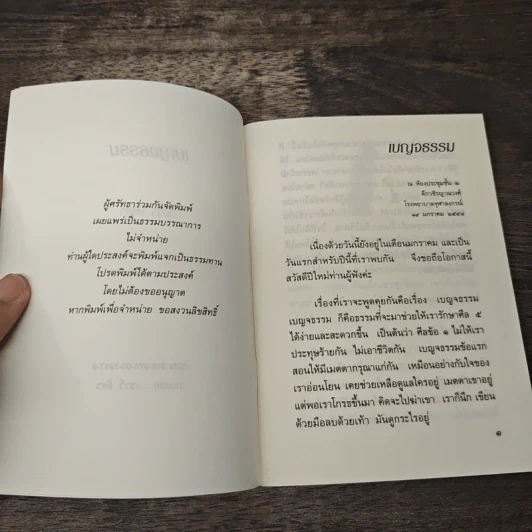 ผู้ศรัทธาร่วมกันจัดพิมพ์
เผยแพร่เป็นธรรมบรรณาการ
ไม่จำหน่าย
ท่านผู้ใดประสงค์จะพิมพ์แจกเป็นธรรมทาน
โปรดพิมพ์ได้ตามประสงค์
โดยไม่ต้องขออนุญาต
หากพิมพ์เพื่อจำหน่าย ขอสงวนลิขสิทธิ์
เบญจธรรม
ณ ห้องประชุมชั้น ๒
ตึกวชิรญาณวงศ์
โรงพยาบาลจุฬาลงกรณ์
๑๙ มกราคม ๒๕๔๔
เนื่องด้วยวันนี้ยังอยู่ในเดือนมกราคม และเป็น
วันแรกสำหรับปีนี้ที่เราพบกัน จึงขอถือโอกาสนี้
สวัสดีปีใหม่ท่านผู้ฟังค่ะ
เรื่องที่เราจะพูดคุยกันคือเรื่อง เบญจธรรม
เบญจธรรม ก็คือธรรมที่จะมาช่วยให้เรารักษาศีล ๕
ได้ง่ายและสะดวกขึ้น เป็นต้นว่า ศีลข้อ ๑ ไม่ให้เรา
ประทุษร้ายกัน ไม่เอาชีวิตกัน เบญจธรรมข้อแรก
สอนให้มีเมตตากรุณาแก่กัน เหมือนอย่างกับใจของ
เราอ่อนโยน เคยช่วยเหลือดูแลใครอยู่ เมตตาเขาอยู่
แต่พอเราโกรธขึ้นมา คิดจะไปฆ่าเขา เราก็นึก เขียน
ด้วยมือลบด้วยเท้า มันดูกระไรอยู่
๑